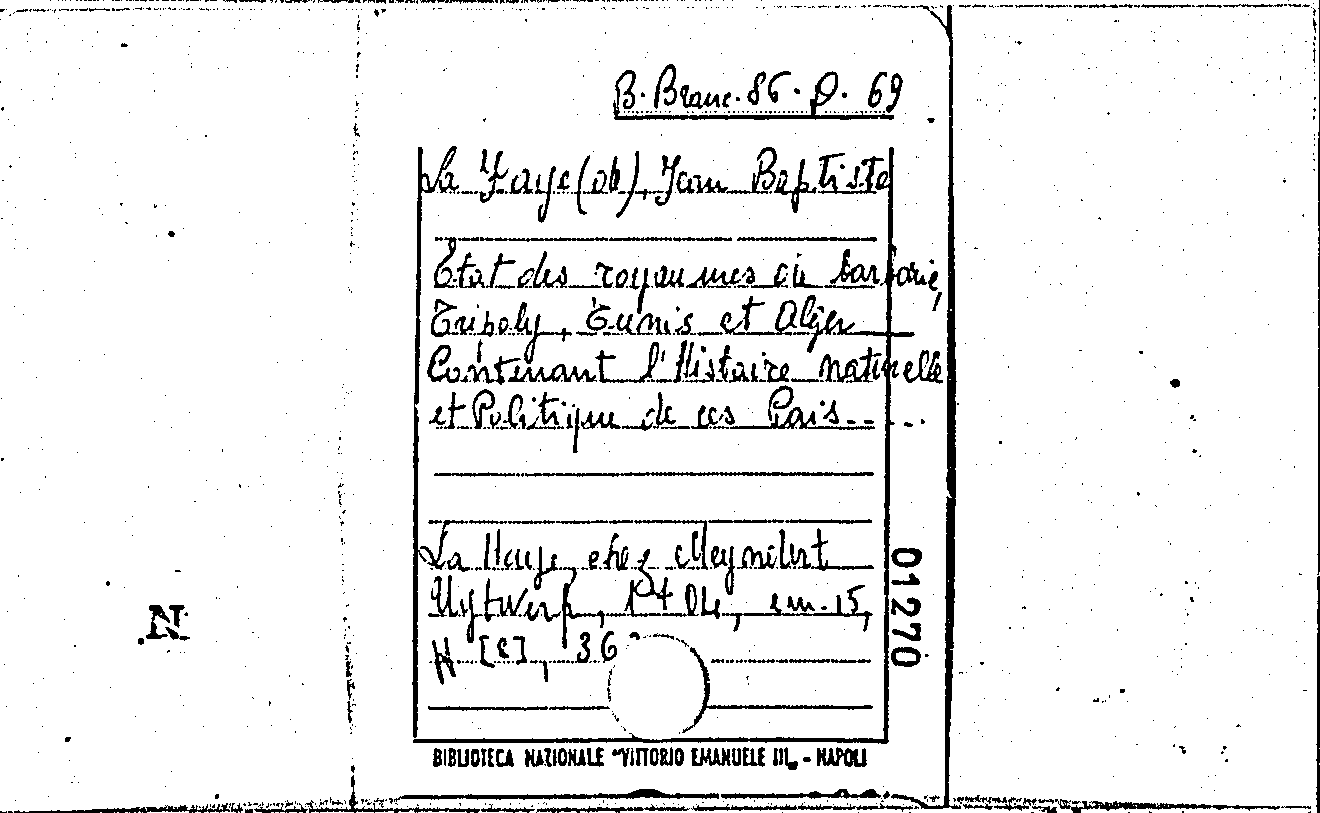 B. Branc. 86. D. 69
La Faye (de), Jean Baptiste
Etat des royaumes de barbarie,
Tripoly, Tunis et Alger
Contenant l'Histoire naturelle
et Politique de ces Pais.....
La Haye, chez Meyndert
Uytwerf, 1704, cm. 15,
[8], 36
01270
N
BIBLIOTECA NAZIONALE "VITTORIO EMANUELE III„ - NAPOLI